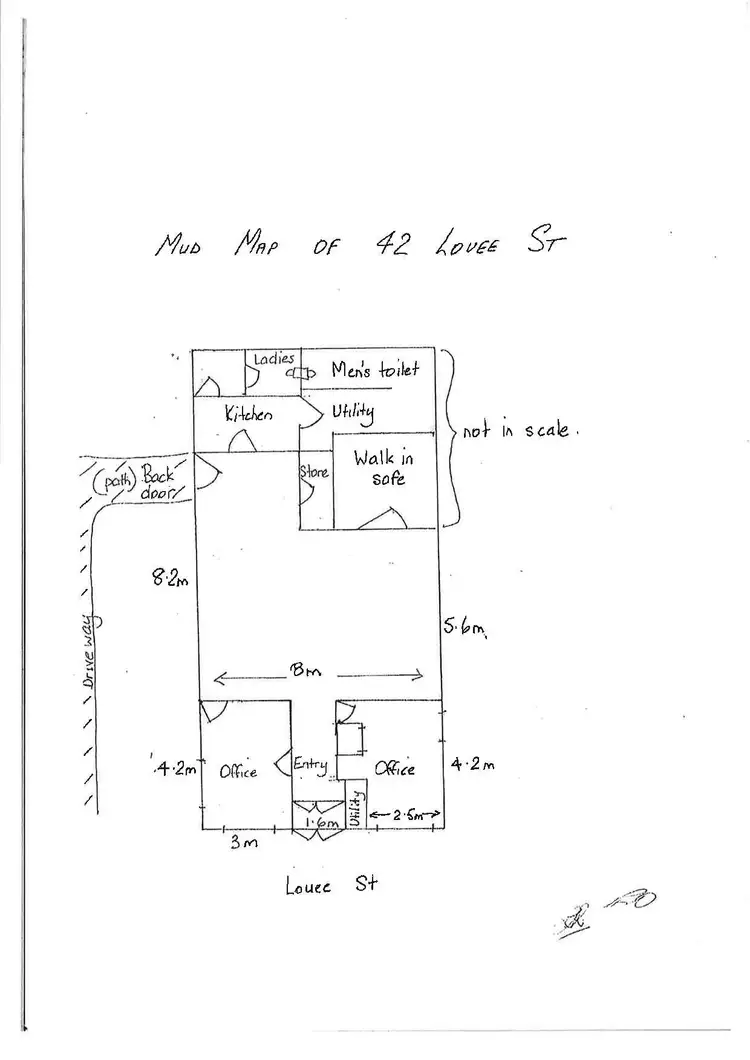 MUD MAP OF 42 LOUEE ST
Ladies
Men's toilet
Kitchen
Utility
not in scale.
Walk in
safe
Store
(path) Back
door
8.2m
5.6m
Drive way
8m
4.2m
Office
Entry
Office
4.2m
1.6m
Utility
2.5m
3m
Louee St